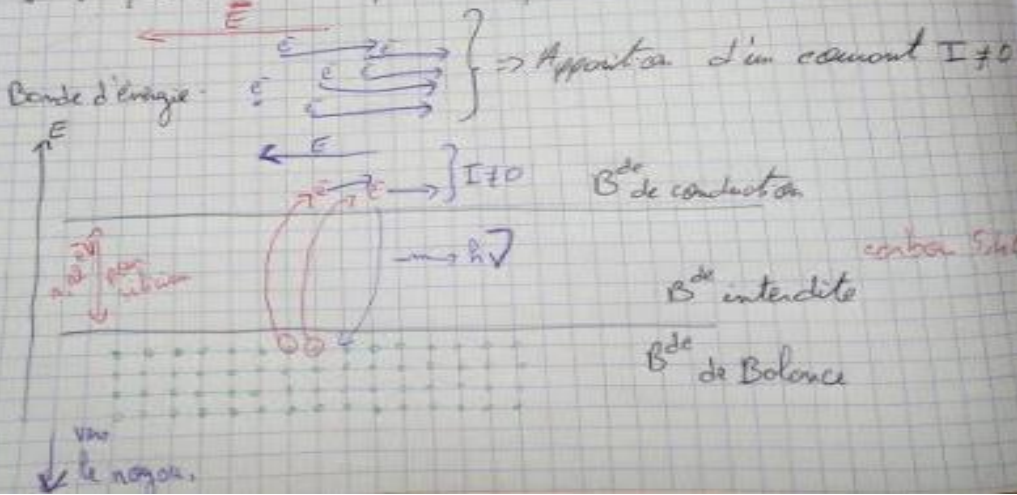 E
e e
e e
=> Apparition d'un courant I ≠ 0
Bande d'énergie. e e
e
E
E
e e I ≠ 0
Bde de conduction
pour
hν
Bde interdite
Bde de Balance
vers
le noyau.